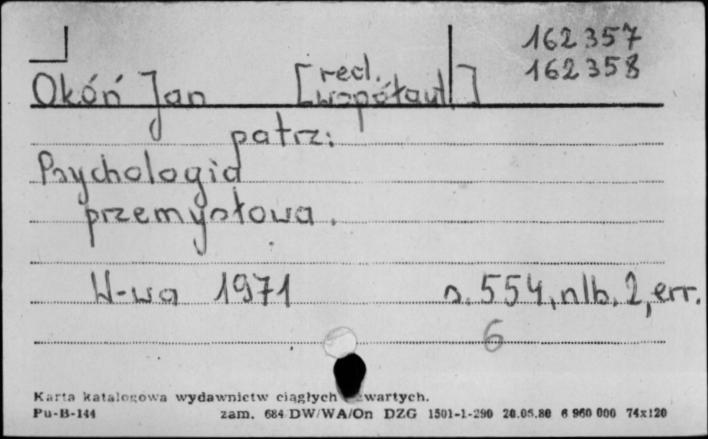 162 357
162 358
Okóń Jan [red. współaut]
patrz:
Psychologia
przemysłowa.
W-wa 1971 s. 554, nlb. 2, err.
6
Karta katalogowa wydawnictw ciągłych zwartych.
Pu-B-144 zam. 684 DW/WA/On DZG 1501-1-290 20.05.80 6 960 000 74x120